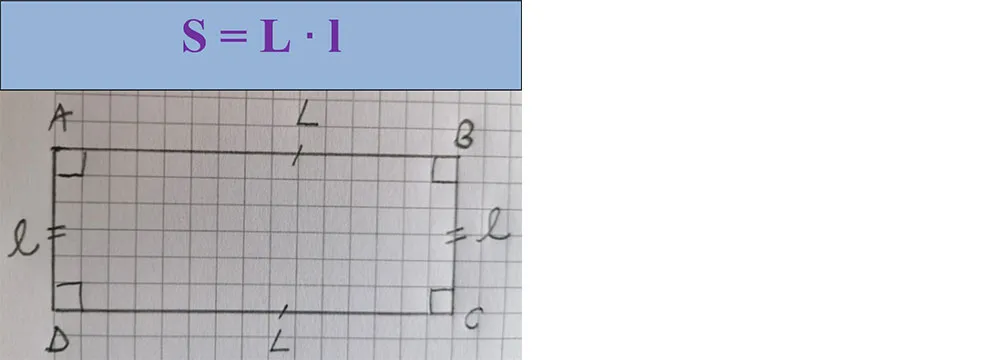 S = L · l
A L B
l l
D L C